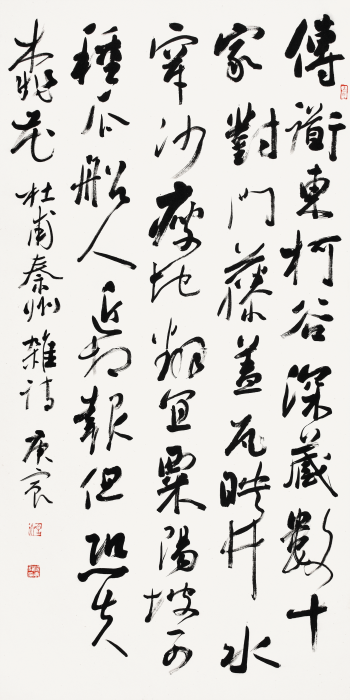 傳衜東柯谷深藏數十
家對門藤蓋瓦映竹水
穿沙瘦地翻宜粟陽坡可
種瓜船人近相報但恐失
桃花杜甫秦州雜詩庚寅